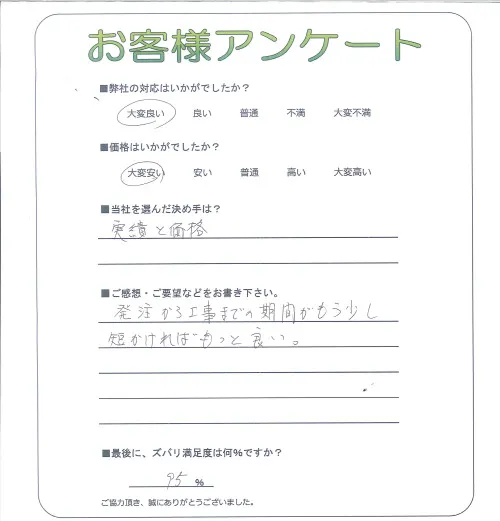 お客様アンケート
■弊社の対応はいかがでしたか？
大変良い 良い 普通 不満 大変不満
■価格はいかがでしたか？
大変安い 安い 普通 高い 大変高い
■当社を選んだ決め手は？
実績と価格
■ご感想・ご要望などをお書き下さい。
発注から工事までの期間がもう少し
短かければもっと良い。
■最後に、ズバリ満足度は何%ですか？
95 %
ご協力頂き、誠にありがとうございました。